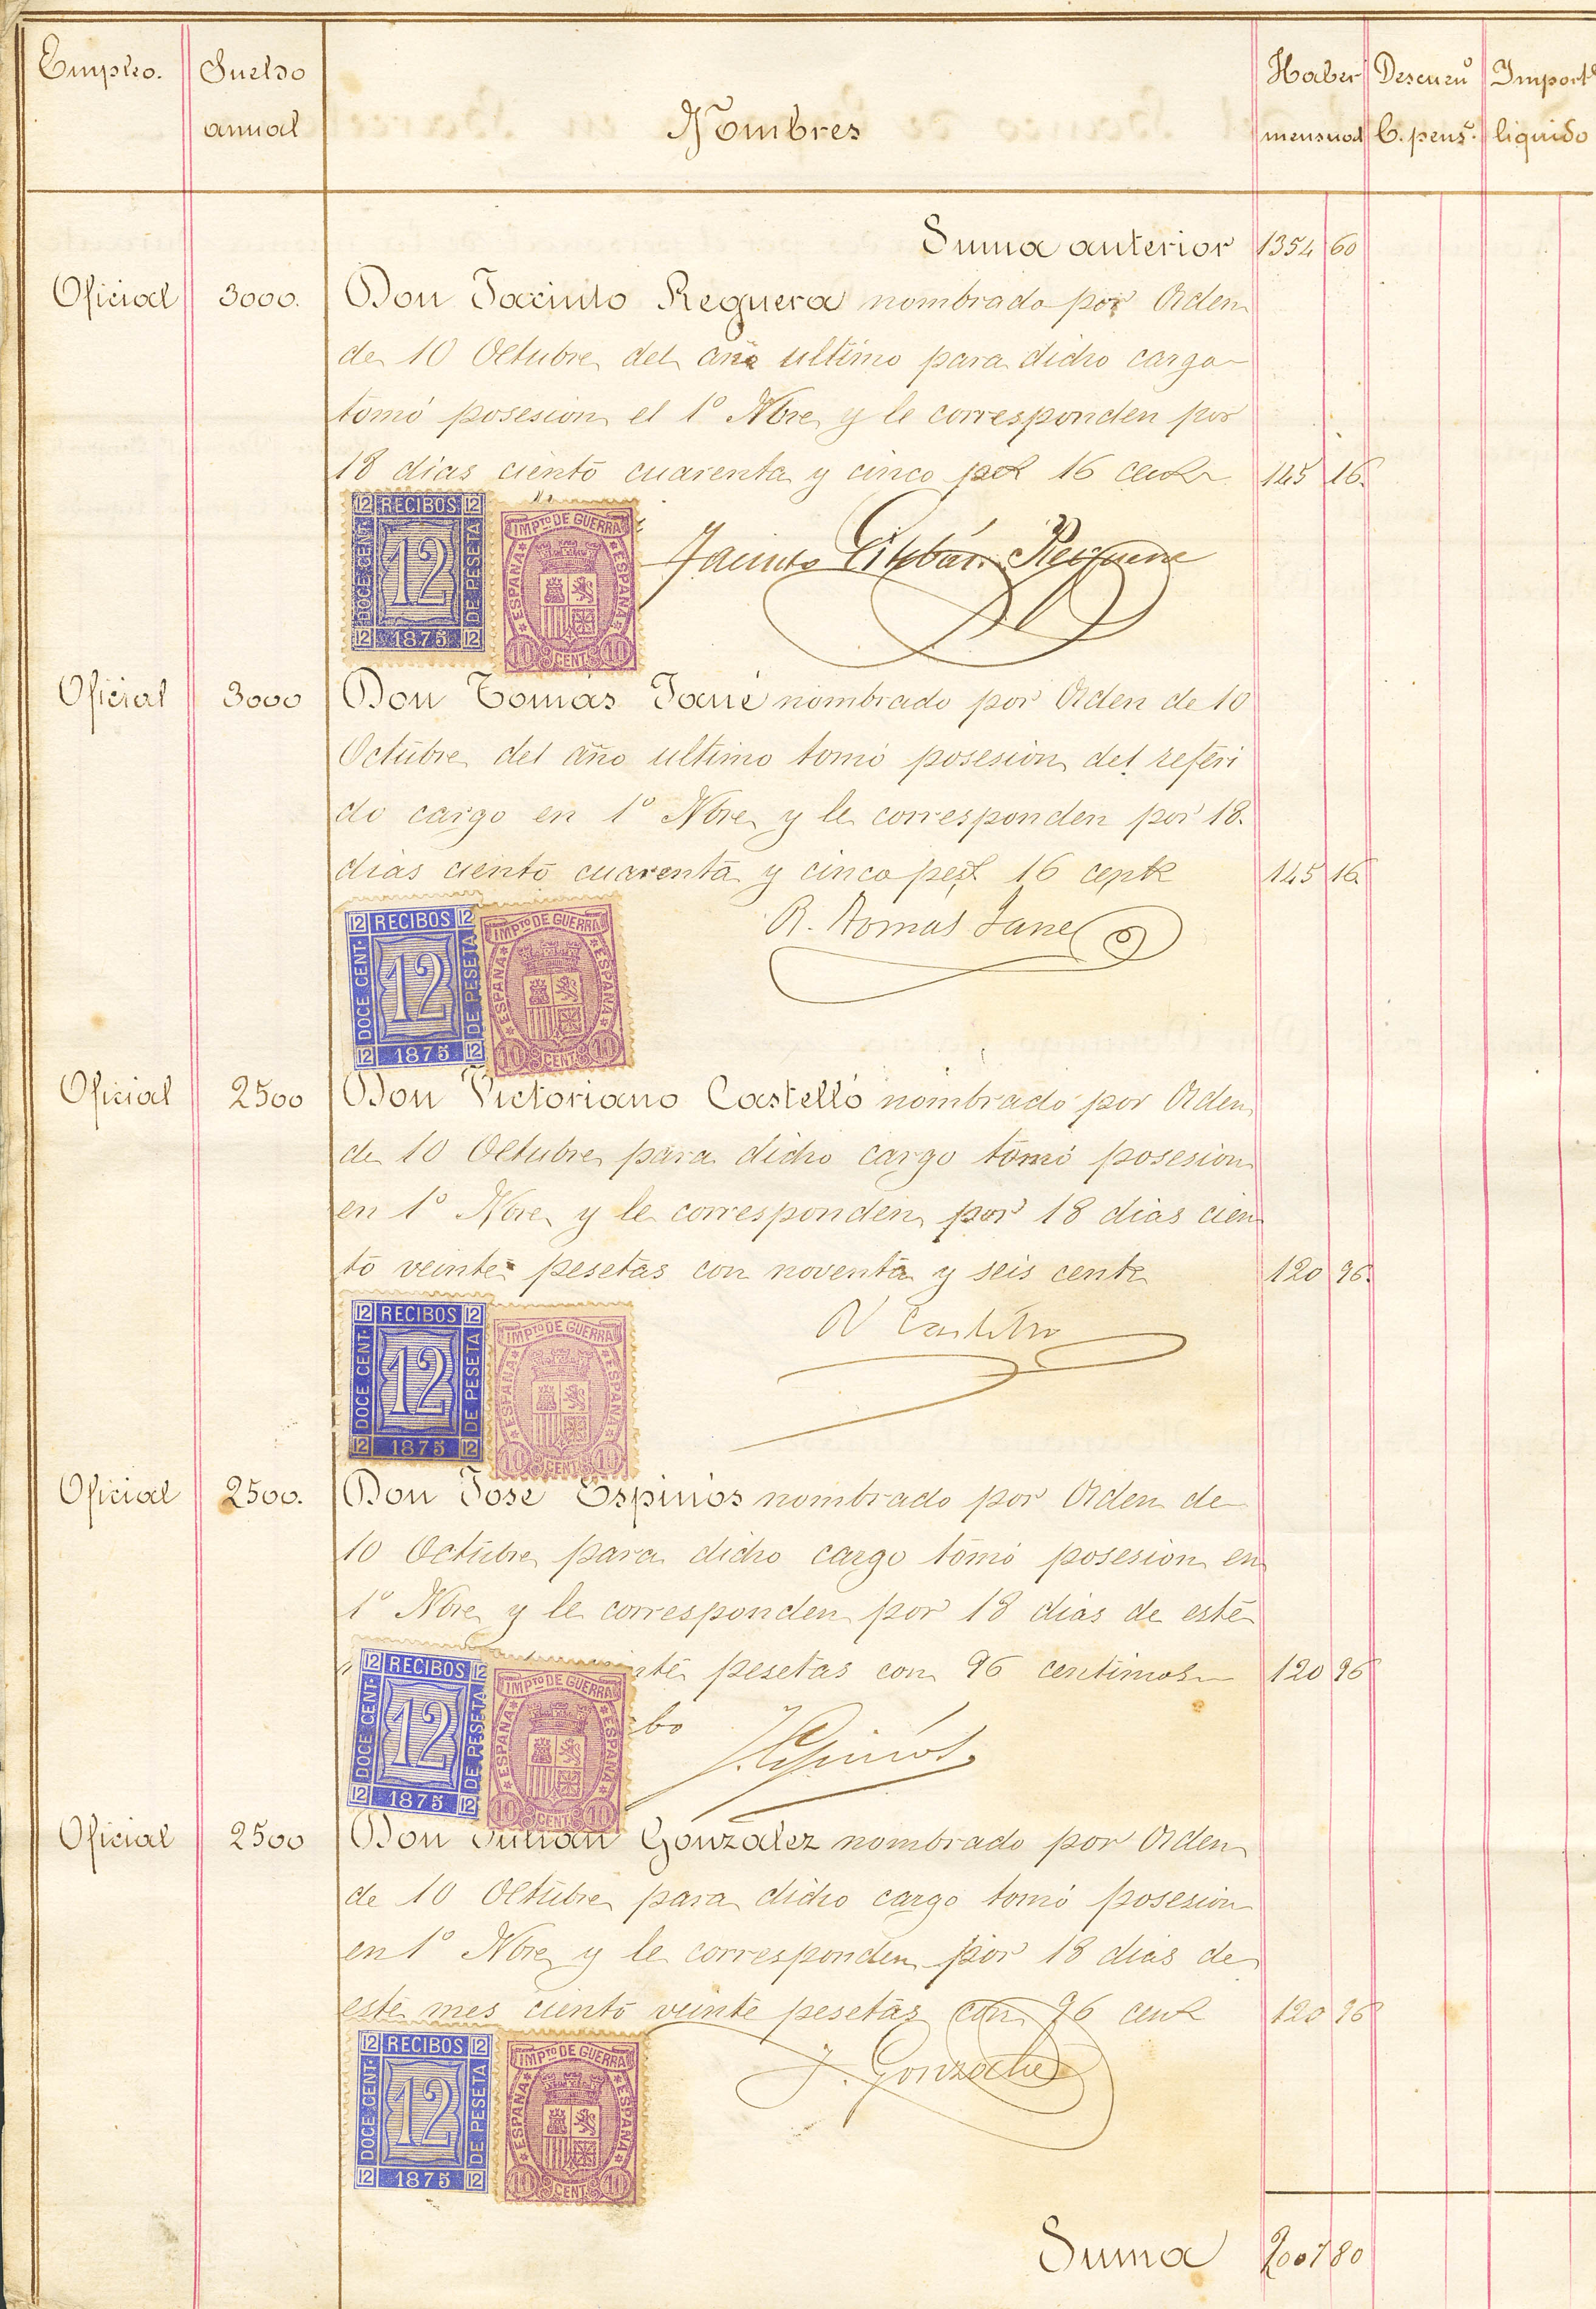 Empleo. Sueldo anual Nombres Haber mensual Descuento C. pens.s Import.e liquido
Suma anterior 1354 60
Oficial 3000. Don Jacinto Reguera nombrado por Orden
de 10 Octubre del año ultimo para dicho cargo
tomó posesion el 1º Nbre y le corresponden por
18 dias ciento cuarenta y cinco pest 16 cents 145 16.
12 RECIBOS 12
DOCE CENT.
12
DE PESETA
12 1875 12
IMPTO DE GUERRA
ESPAÑA ESPAÑA
10 CENT.S 10
Jacinto Esteban Reguera
Oficial 3000 Don Tomás Jané nombrado por Orden de 10
Octubre del año ultimo tomó posesion del referi
do cargo en 1º Nbre y le corresponden por 18.
dias ciento cuarenta y cinco pest 16 cents 145 16
12 RECIBOS 12
DOCE CENT.
12
DE PESETA
12 1875 12
IMPTO DE GUERRA
ESPAÑA ESPAÑA
10 CENT.S 10
R. Tomás Jané
Oficial 2500 Don Victoriano Castelló nombrado por Orden
de 10 Octubre para dicho cargo tomó posesion
en 1º Nbre y le corresponden por 18 dias cien
to veinte pesetas con noventa y seis cents 120 96.
12 RECIBOS 12
DOCE CENT.
12
DE PESETA
12 1875 12
IMPTO DE GUERRA
ESPAÑA ESPAÑA
10 CENT.S 10
V Castelló
Oficial 2500. Don José Espinós nombrado por Orden de
10 Octubre para dicho cargo tomó posesion en
1º Nbre y le corresponden por 18 dias de este
nte pesetas con 96 centimos 120 96
12 RECIBOS 12
DOCE CENT.
12
DE PESETA
12 1875 12
IMPTO DE GUERRA
ESPAÑA ESPAÑA
10 CENT.S 10
bo
J. Espinós
Oficial 2500 Don Julián González nombrado por Orden
de 10 Octubre para dicho cargo tomó posesion
en 1º Nbre y le corresponden por 18 dias de
este mes ciento veinte pesetas con 96 cent 120 96
12 RECIBOS 12
DOCE CENT.
12
DE PESETA
12 1875 12
IMPTO DE GUERRA
ESPAÑA ESPAÑA
10 CENT.S 10
J. González
Suma 2007 80